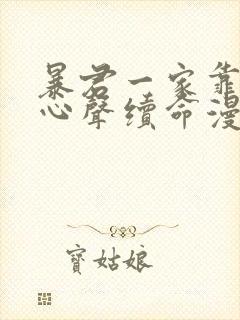 暴君一家靠
心聲續命漫
寶姑娘